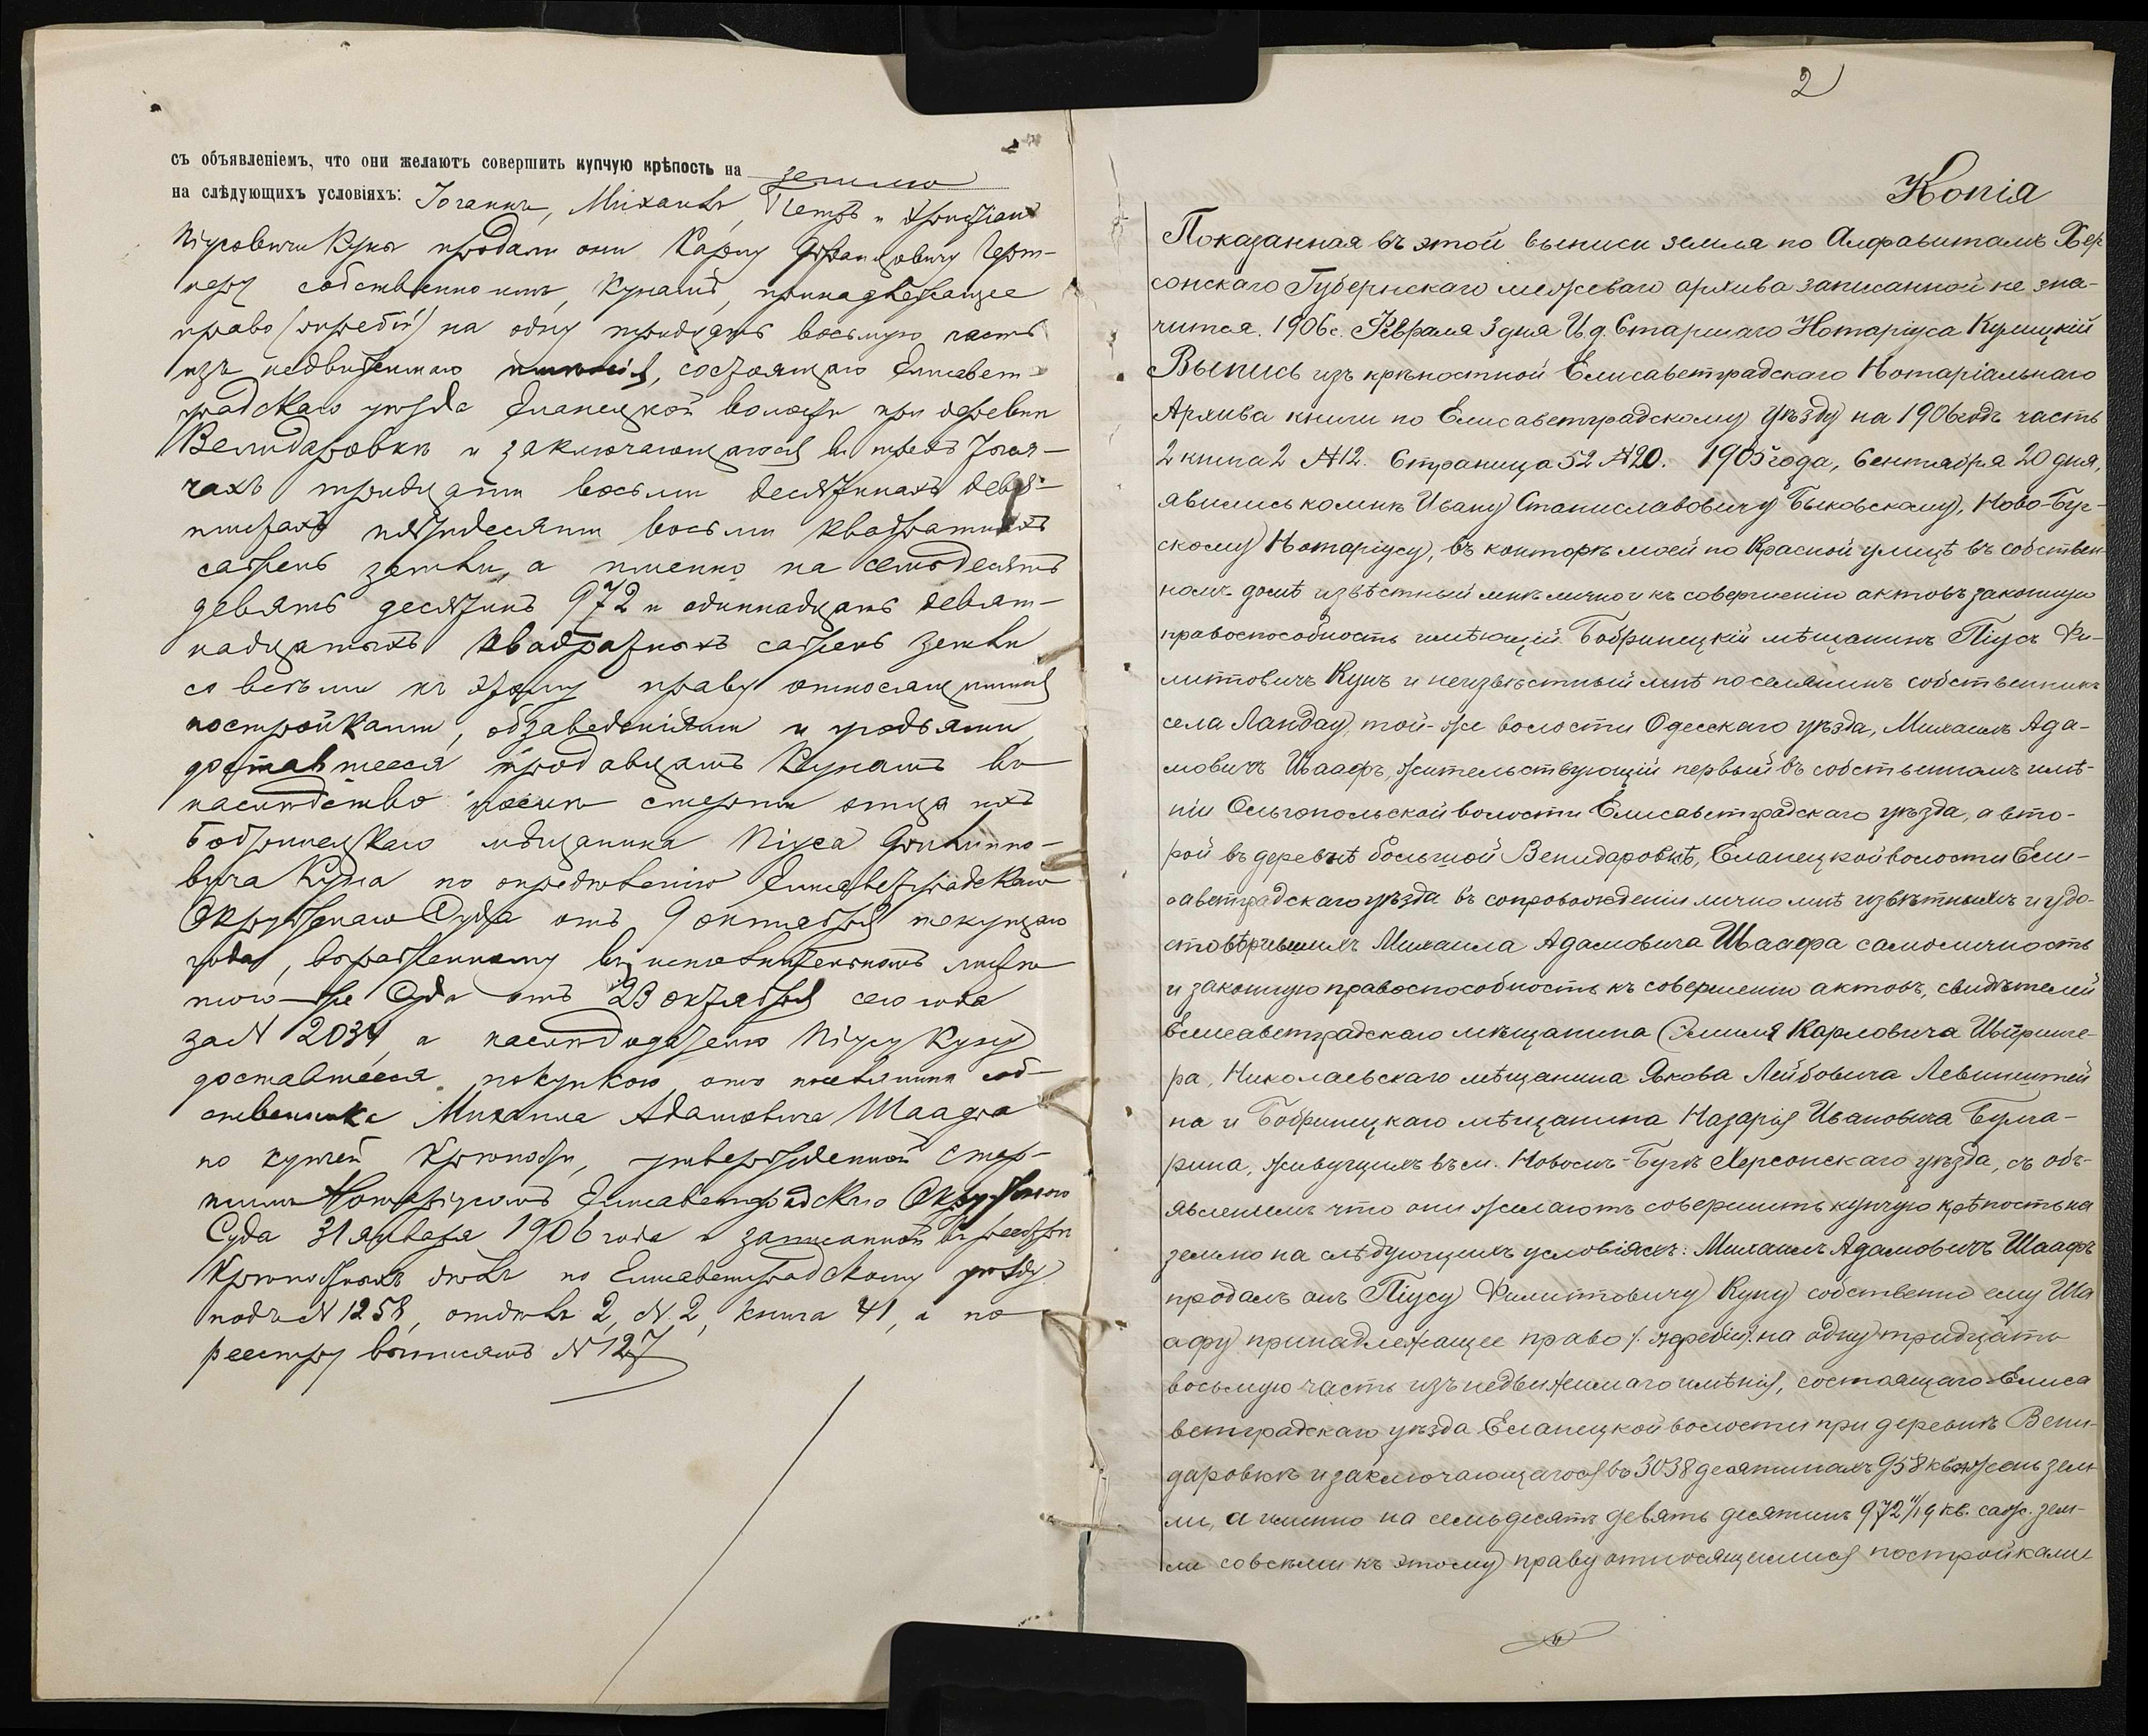 съ объявленіемъ, что они желаютъ совершить купчую крѣпость на землю
на слѣдующихъ условіяхъ: Іоганнъ, Михаилъ, Петръ и Христіанъ
Піусовичи Куны продали они Карлу Францовичу Герт-
неру собственно имъ, Кунамъ, принадлежащее
право (жребій) на одну тридцать восьмую часть
изъ недвижимаго имѣнія, состоящаго Елисавет-
градскаго уѣзда Еланецкой волости при деревнѣ
Венидаровкѣ и заключающагося въ трехъ тыся-
чахъ тридцати восьми десятинахъ девя-
тистахъ пятидесяти восьми квадратныхъ
сажень земли, а именно на семьдесятъ
девять десятинъ 972 и одиннадцать девят-
надцатыхъ квадратныхъ сажень земли
со всѣми къ этому праву относящимися
постройками, обзаведеніями и угодьями,
доставшееся продавцамъ Кунамъ въ
наслѣдство послѣ смерти отца ихъ
Бобринецкаго мѣщанина Піуса Филиппо-
вича Куна по опредѣленію Елисаветградскаго
Окружнаго Суда отъ 9 октября текущаго
года, выраженному въ исполнительномъ листѣ
того-же Суда отъ 23 октября сего года
за N 2034, а наслѣдодателю Піусу Куну
доставшееся покупкою отъ поселянина соб-
ственника Михаила Адамовича Шаафа
по купчей крѣпости, утвержденной Стар-
шимъ Нотаріусомъ Елисаветградскаго Окружнаго
Суда 31 января 1906 года и записанной въ реестрѣ
крѣпостныхъ дѣлъ по Елисаветградскому уѣзду
подъ N 1258, отдѣлъ 2, N 2, книга 41, а по
реестру выписямъ N 127
2
Копія
Показанная въ этой выписи земля по Алфавитамъ Хер
сонскаго Губернскаго межеваго архива записанной не зна-
чится. 1906 г. Февраля 3 дня И. д. Старшаго Нотаріуса Кулицкій
Выпись изъ крѣпостной Елисаветградскаго Нотаріальнаго
Архива книги по Елисаветградскому уѣзду на 1906 годъ часть
2 книга 2 N12. Страница 52 N20. 1905 года, Сентября 20 дня,
явились ко мнѣ Ивану Станиславовичу Быковскому, Ново-Буг-
скому Нотаріусу, въ конторѣ моей по Красной улицѣ въ собствен
номъ домѣ извѣстный мнѣ лично и къ совершенію актовъ законную
правоспособность имѣющій Бобринецкій мѣщанинъ Піусъ Фи-
липповичъ Кунъ и неизвѣстный мнѣ поселянинъ собственникъ
села Ландау, той-же волости Одесскаго уѣзда, Михаилъ Ада-
мовичъ Шаафъ, жительствующій первый въ собственномъ имѣ-
ніи Ольгопольской волости Елисаветградскаго уѣзда, а вто-
рой въ деревнѣ большой Венидаровкѣ, Еланецкой волости Ели-
саветградскаго уѣзда въ сопровожденіи лично мнѣ извѣстныхъ и удо-
стовѣрившихъ Михаила Адамовича Шаафа самоличность
и законную правоспособность къ совершенію актовъ, свидѣтелей
Елисаветградскаго мѣщанина Эмиля Карловича Шпринге-
ра, Николаевскаго мѣщанина Якова Лейбовича Левинштей
на и Бобринецкаго мѣщанина Назарія Ивановича Булга-
рина, живущихъ въ м. Новомъ-Бугѣ Херсонскаго уѣзда, съ объ-
явленіемъ что они желаютъ совершить купчую крѣпость на
землю на слѣдующихъ условіяхъ: Михаилъ Адамовичъ Шаафъ
продалъ онъ Піусу Филипповичу Куну собственно ему Ша
афу принадлежащее право /жребій/ на одну тридцать
восьмую часть изъ недвижимаго имѣнія, состоящаго Елиса
ветградскаго уѣзда Еланецкой волости при деревнѣ Вени-
даровкѣ и заключающагося въ 3038 десятинахъ 958 кв. сажень зем
ли, а именно на семьдесятъ девять десятинъ 972 11/19 кв. саж. зем-
ли со всѣми къ этому праву относящимися постройками